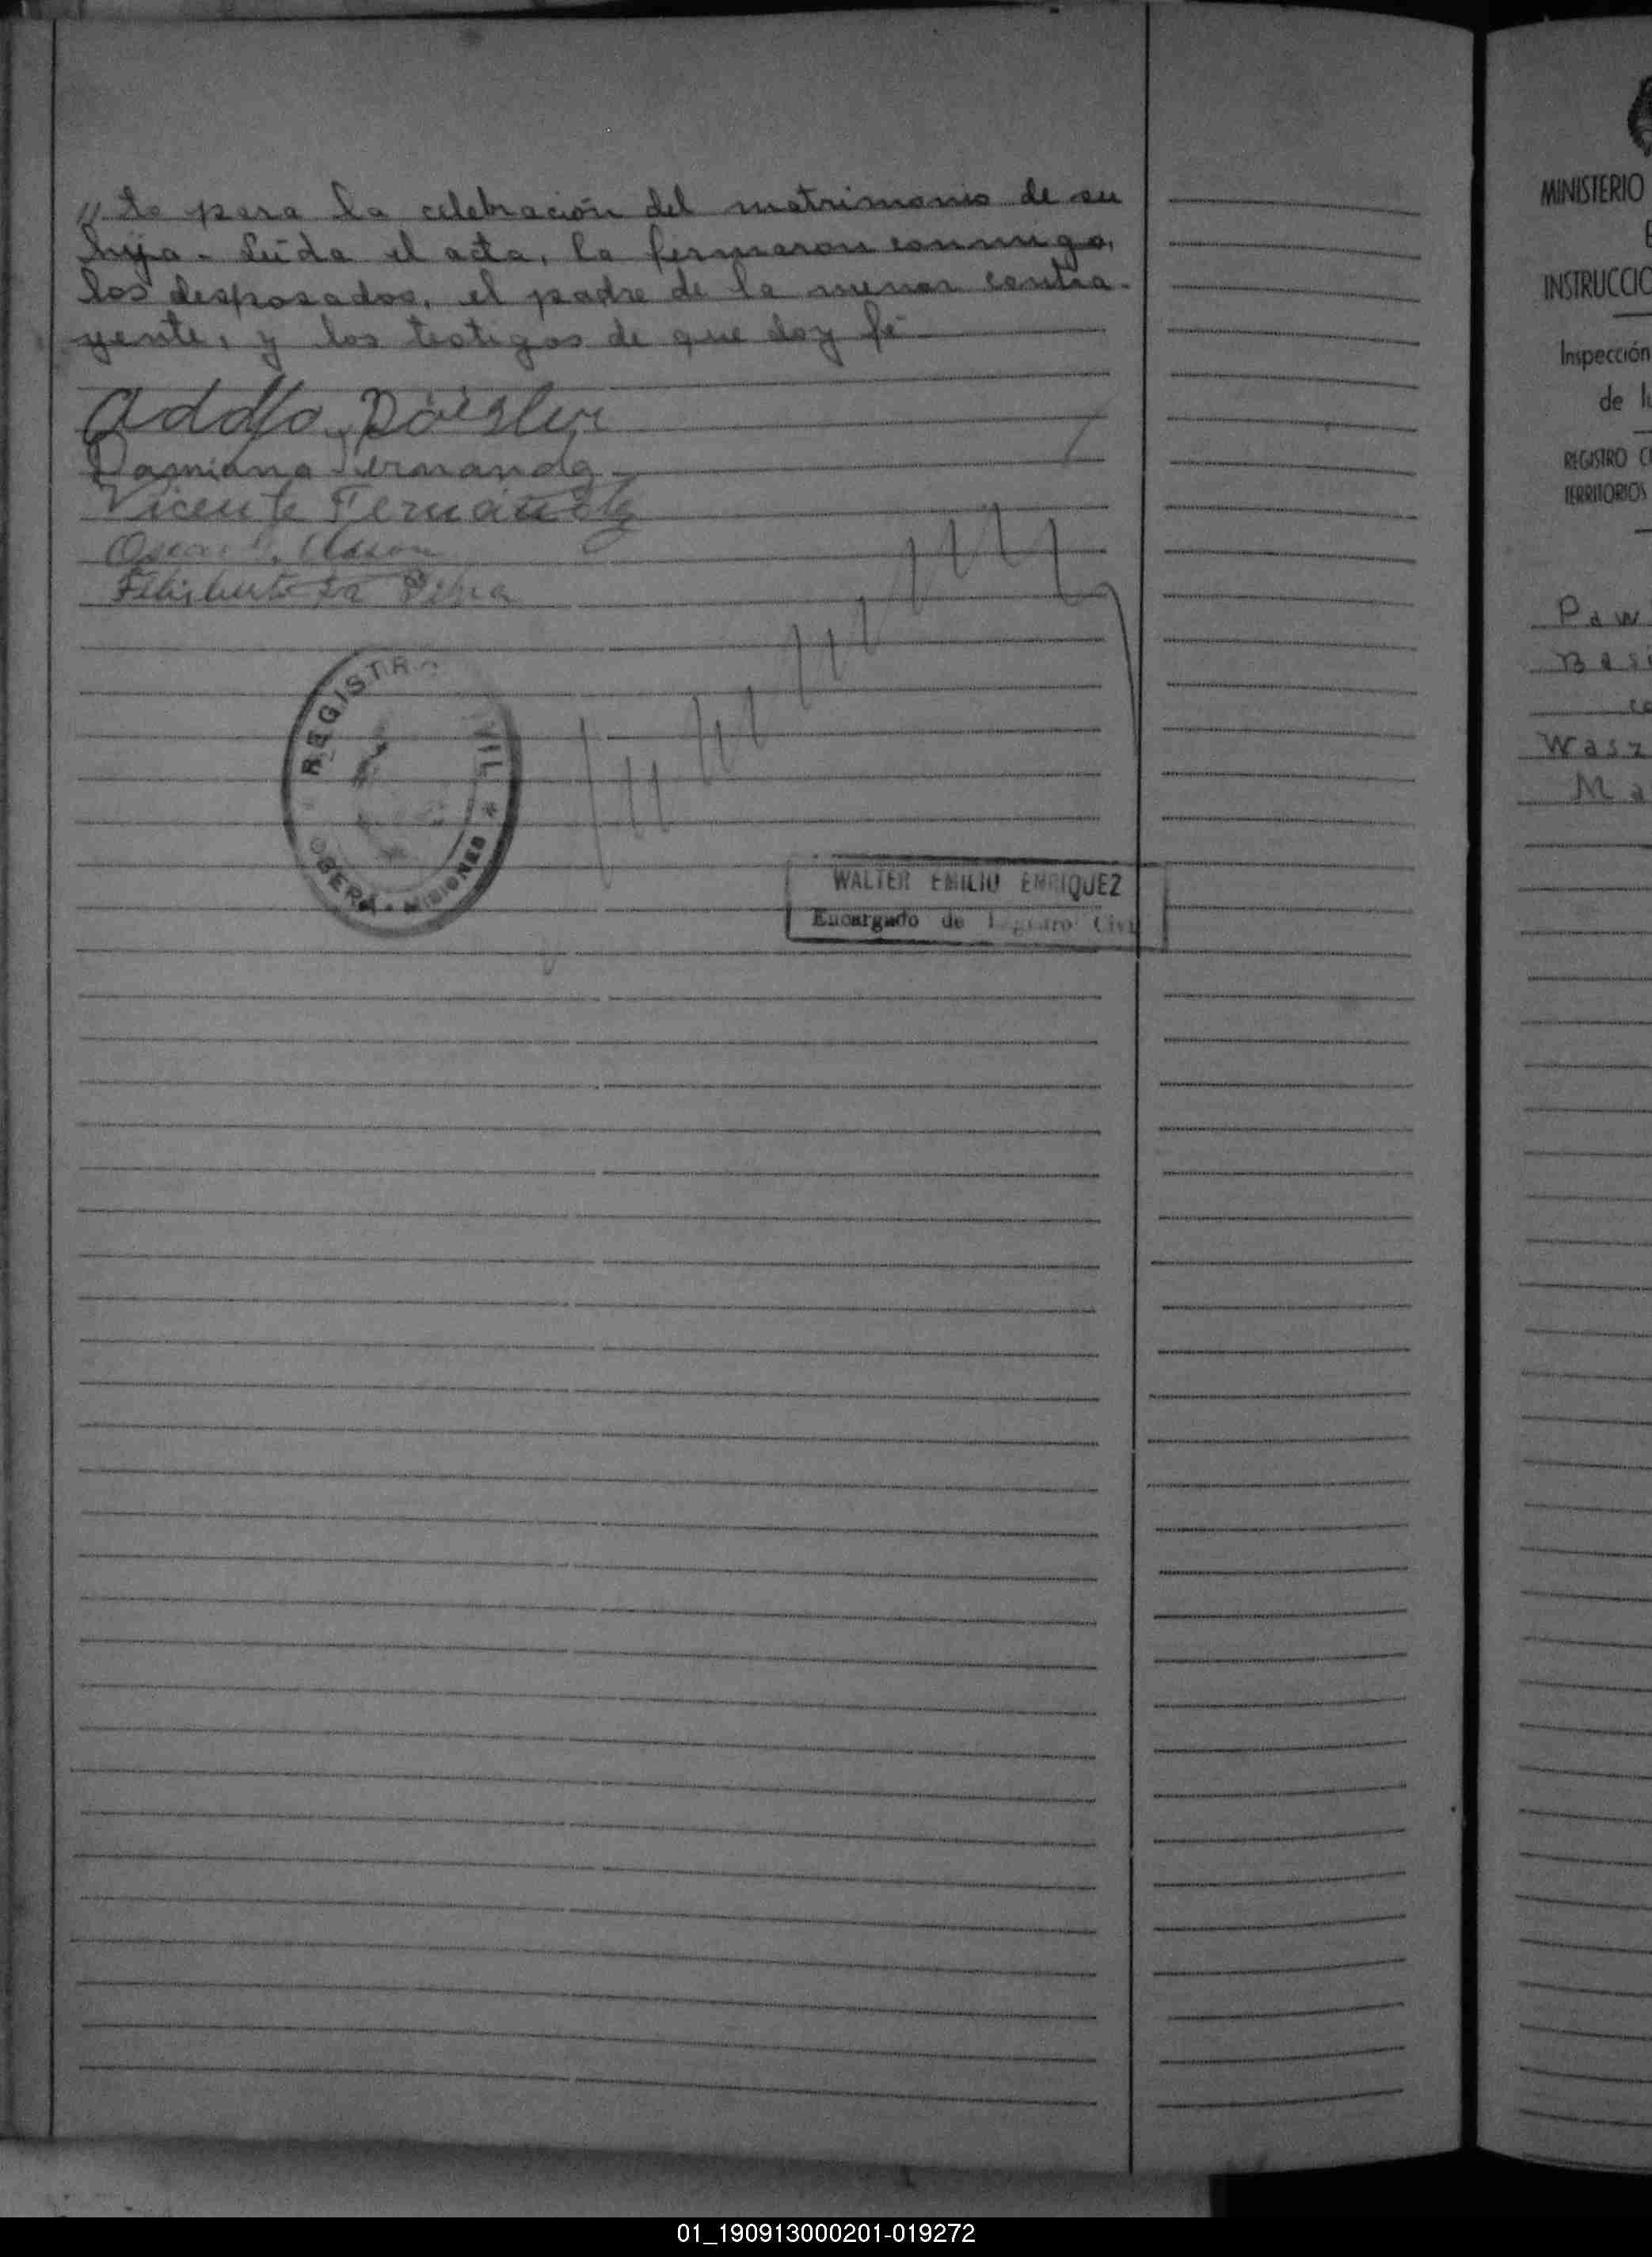 // to para la celebración del matrimonio de su
hija. Leída el acta, la firmaron conmigo,
los desposados, el padre de la menor contra-
yente, y los testigos de que doy fé
Adolfo
Damiana Fernandez
Vicente Fernández
Filiberto
REGISTRO CIVIL
OBERA - MISIONES
WALTER EMILIO ENRIQUEZ
Encargado de Registro Civil
MINISTERIO
INSTRUCCIO
Inspección
de
REGISTRO CI
TERRITORIOS
Paw
Basi
Wasz
Ma
01_190913000201-019272